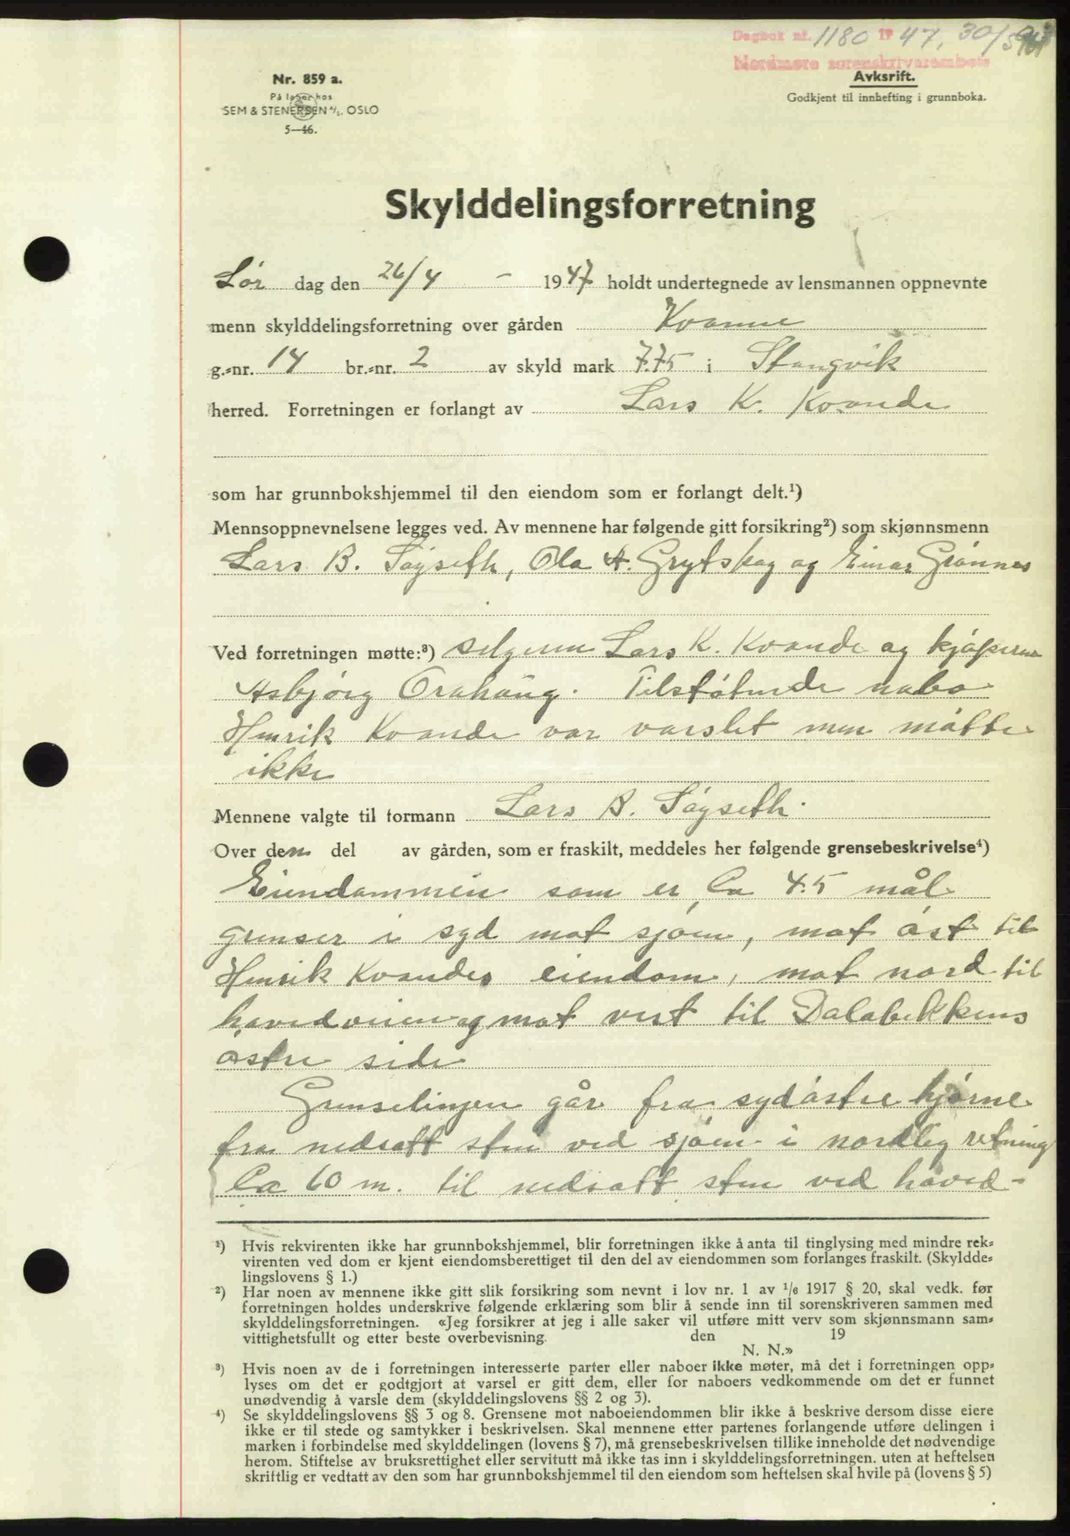 Dagbok nr. 1180 1947, 30/5
Nordmøre sorenskriverembete
Nr. 859 a.
På lager hos
SEM & STENERSEN A/S. OSLO
5—46.
Avksrift.
Godkjent til innhefting i grunnboka.
Skylddelingsforretning
Lør dag den 26/4 - 1947 holdt undertegnede av lensmannen oppnevnte
menn skylddelingsforretning over gården Kvanne
g.-nr. 14 br.-nr. 2 av skyld mark 7.75 i Stangvik
herred. Forretningen er forlangt av Lars K. Kvande
som har grunnbokshjemmel til den eiendom som er forlangt delt.¹)
Mennsoppnevnelsene legges ved. Av mennene har følgende gitt forsikring²) som skjønnsmenn
Lars B. Søyseth, Ola A. Grytskog og Einar Grønnes
Ved forretningen møtte:³) selgeren Lars K. Kvande og kjøperen
Asbjørg Orahaug. Tilstøtende nabo
Henrik Kvande var varslet men møtte
ikke
Mennene valgte til formann Lars B. Søyseth.
Over den del av gården, som er fraskilt, meddeles her følgende grensebeskrivelse⁴)
Eiendommen som er Ca 4.5 mål
grenser i syd mot sjøen, mot øst til
Henrik Kvandes eiendom, mot nord til
hovedveien og mot vest til Dalabekkens
østre side
Grenselinjen går fra sydøstre hjørne
fra nedsatt sten ved sjøen i nordlig retning
Ca 60 m. til nedsatt sten ved hoved-
¹) Hvis rekvirenten ikke har grunnbokshjemmel, blir forretningen ikke å anta til tinglysing med mindre rek-
virenten ved dom er kjent eiendomsberettiget til den del av eiendommen som forlanges fraskilt. (Skyldde-
lingslovens § 1.)
²) Har noen av mennene ikke gitt slik forsikring som nevnt i lov nr. 1 av 1/6 1917 § 20, skal vedk. før
forretningen holdes underskrive følgende erklæring som blir å sende inn til sorenskriveren sammen med
skylddelingsforretningen. «Jeg forsikrer at jeg i alle saker vil utføre mitt verv som skjønnsmann sam-
vittighetsfullt og etter beste overbevisning. den 19
N. N.»
³) Hvis noen av de i forretningen interesserte parter eller naboer ikke møter, må det i forretningen opp-
lyses om det er godtgjort at varsel er gitt dem, eller for naboers vedkommende om det er funnet
unødvendig å varsle dem (skylddelingslovens §§ 2 og 3).
⁴) Se skylddelingslovens §§ 3 og 8. Grensene mot naboeiendommen blir ikke å beskrive dersom disse eiere
ikke er til stede og samtykker i beskrivelsen. Skal mennene etter partenes forlangende utføre delingen i
marken i forbindelse med skylddelingen (lovens § 7), må grensebeskrivelsen tillike inneholde det nødvendige
herom. Stiftelse av bruksrettighet eller servitutt må ikke tas inn i skylddelingsforretningen. uten at heftelsen
skriftlig er vedtatt av den som har grunnbokshjemmel til den eiendom som heftelsen skal hvile på (lovens § 5)